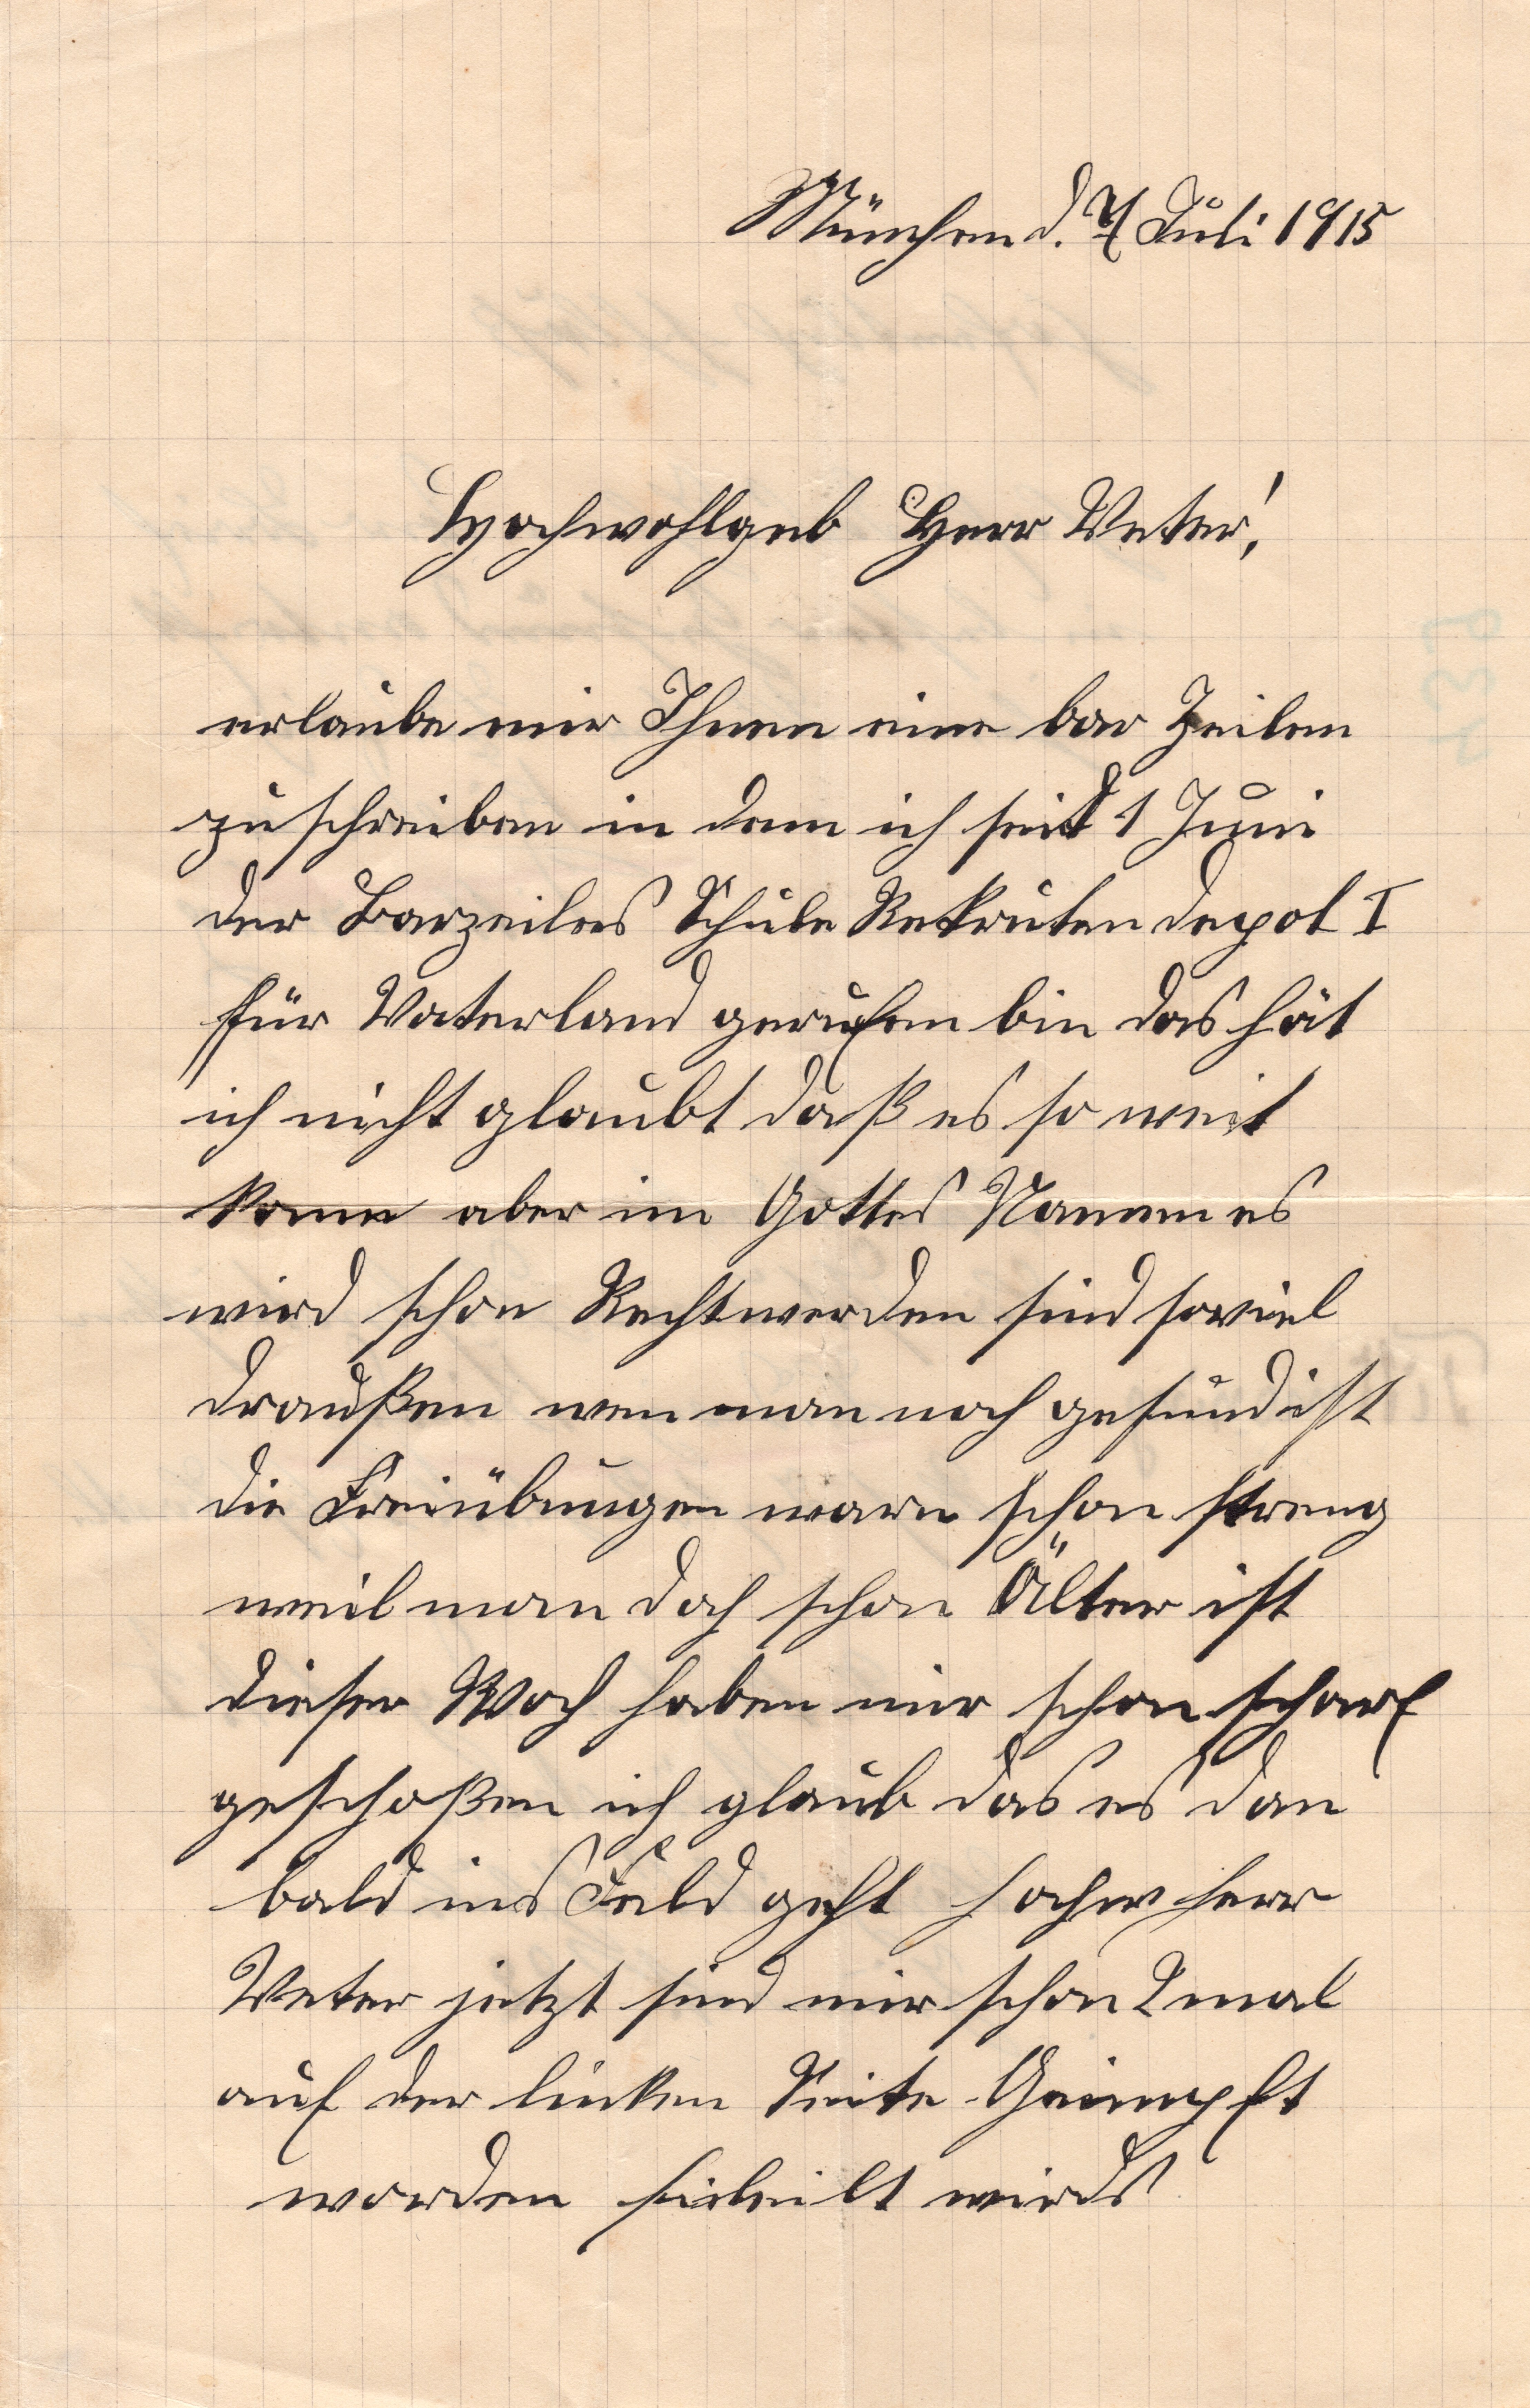 München d. 4 Juli 1915
Hochwohlgeb Herr Veter!
erlaube mir Ihnen eine bar Zeilen
zu schreiben in dem ich seid 1 Juni
der Barzeiles Schule Rekruten depot I
für Vaterland gerufen bin das hät
ich nicht glaubt daß es so weit
kome aber im Gottes Namen es
wird schon Recht werden sind soviel
draußen wen man noch gesund ist
die Freiübungen warn schon streng
weil man doch schon Älter ist
dieser Woch haben mir schon scharf
geschoßen ich glaub das es dan
bald ins Feld geht hochw Herr
Veter jetzt sind mir schon 2 mal
auf der linken Seite Geimpft
worden wirds